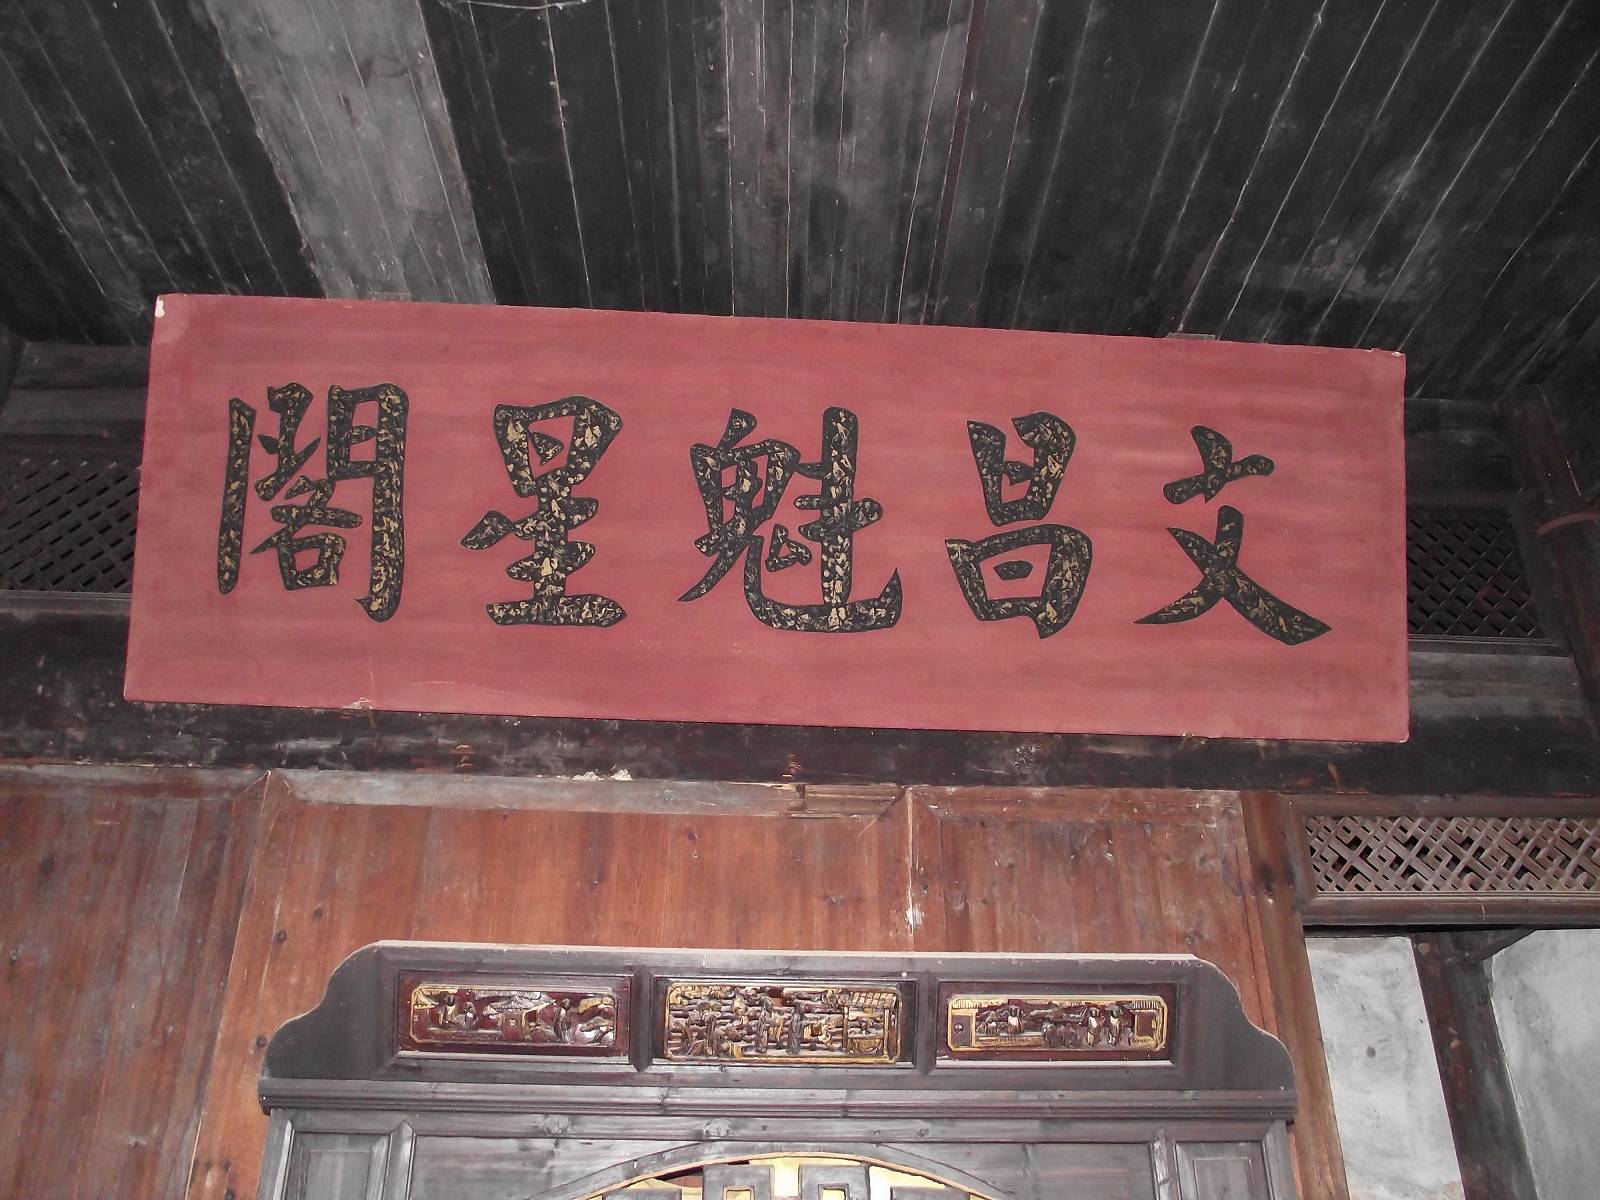 文昌魁星閣